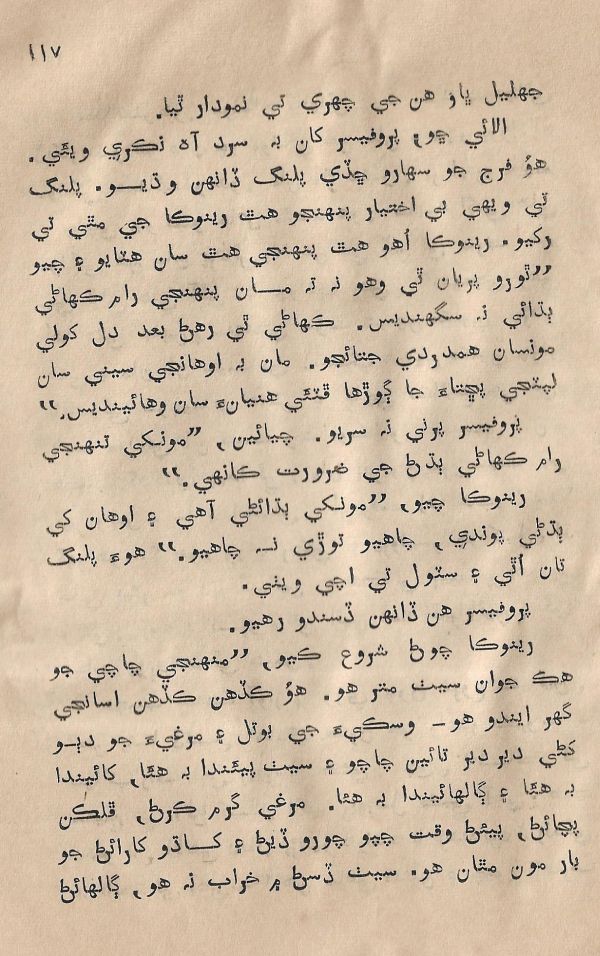 ١١٧
جھليل ڀاوَ هن جي چهري تي نمودار ٿيا.
الائي ڇو، پروفيسر کان به سرد آه نڪري ويئي.
هوُ فرج جو سهارو ڇڏي پلنگ ڏانهن وڌيو. پلنگ
تي ويهي بي اختيار پنهنجو هٿ رينوڪا جي مٿي تي
رکيو. رينوڪا اُهو هٿ پنهنجي هٿ سان هٽايو ۽ چيو
”ٿورو پريان ٿي وهو نه ته مان پنهنجي رام ڪهاڻي
ٻڌائي نه سگهنديس. ڪهاڻي ٿي رهڻ بعد دل کولي
مونسان همدردي جتائجو. مان به اوهانجي سيني سان
لپٽجي پڇتاءَ جا ڳوڙها ڦٽئي هنيانءَ سان وهائينديس.“
پروفيسر پرتي نه سريو. چيائين، ”مونکي تنهنجي
رام ڪهاڻي ٻڌڻ جي ضرورت ڪانهي.“
رينوڪا چيو، ”مونکي ٻڌائڻي آهي ۽ اوهان کي
ٻڌڻي پوندي، چاهيو توڙي نه چاهيو.“ هوءَ پلنگ
تان اُٿي ۽ سٽول تي اچي ويٺي.
پروفيسر هن ڏانهن ڏسندو رهيو.
رينوڪا چوڻ شروع ڪيو، ”منهنجي چاچي جو
هڪ جوان سيٺ متر هو. هوُ ڪڏهن ڪڏهن اسانجي
گهر ايندو هو – وسڪيءَ جي بوتل ۽ مرغيءَ جو دٻو
کڻي دير دير تائين چاچو ۽ سيٺ پيئندا به هئا، کائيندا
به هئا ۽ ڳالهائيندا به هئا. مرغي گرم ڪرڻ، ڦلڪن
پچائڻ، پيئڻ وقت چپو چورو ڏيڻ ۽ کاڌو کارائڻ جو
بار مون مٿان هو. سيٺ ڏسڻ ۾ خراب نه هو، ڳالهائڻ